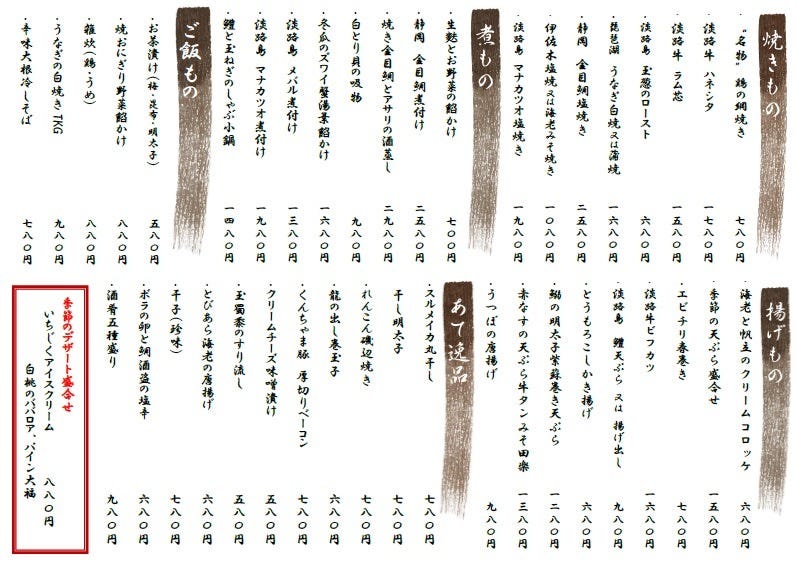 焼きもの
・“名物”　鶏の網焼き　七八〇円
・淡路牛　ハネシタ　一七八〇円
・淡路牛　ラム芯　一五八〇円
・淡路島　玉葱のロースト　六八〇円
・琵琶湖　うなぎ白焼又は蒲焼　一六八〇円
・静岡　金目鯛塩焼き　二五八〇円
・伊佐木塩焼又は海老みそ焼き　一〇八〇円
・淡路島　マナカツオ塩焼き　一九八〇円
煮もの
・生麩とお野菜の餡かけ　七〇〇円
・静岡　金目鯛煮付け　二五八〇円
・焼き金目鯛とアサリの酒蒸し　二九八〇円
・白とり貝の吸物　九八〇円
・冬瓜のズワイ蟹湯葉餡かけ　一六八〇円
・淡路島　メバル煮付け　一三八〇円
・淡路島　マナカツオ煮付け　一九八〇円
・鱧と玉ねぎのしゃぶ小鍋　一四八〇円
ご飯もの
・お茶漬け（梅・昆布・明太子）　五八〇円
・焼おにぎり野菜餡かけ　八八〇円
・雑炊（鶏・うめ）　八八〇円
・うなぎの白焼きTKG　九八〇円
・辛味大根冷しそば　七八〇円
揚げもの
・海老と帆立のクリームコロッケ　六八〇円
・季節の天ぷら盛合せ　一五八〇円
・エビチリ春巻き　七八〇円
・淡路牛ビフカツ　一六八〇円
・淡路島　鱧天ぷら　又は　揚げ出し　九八〇円
・とうもろこしかき揚げ　六八〇円
・鰯の明太子紫蘇巻き天ぷら　一二八〇円
・赤なすの天ぷら牛タンみそ田楽　一三八〇円
・うつぼの唐揚げ　九八〇円
あて逸品
・スルメイカ丸干し　七八〇円
・干し明太子　七八〇円
・れんこん磯辺焼き　七八〇円
・龍の出し巻玉子　六八〇円
・くんちゃま豚　厚切りベーコン　七八〇円
・クリームチーズ味噌漬け　五八〇円
・玉蜀黍のすり流し　五八〇円
・とびあら海老の唐揚げ　六八〇円
・干子（珍味）　七八〇円
・ボラの卵と鯛酒盗の塩辛　六八〇円
・酒肴五種盛り　九八〇円
季節のデザート盛合せ
いちじくアイスクリーム　八八〇円
白桃のババロア、パイン大福